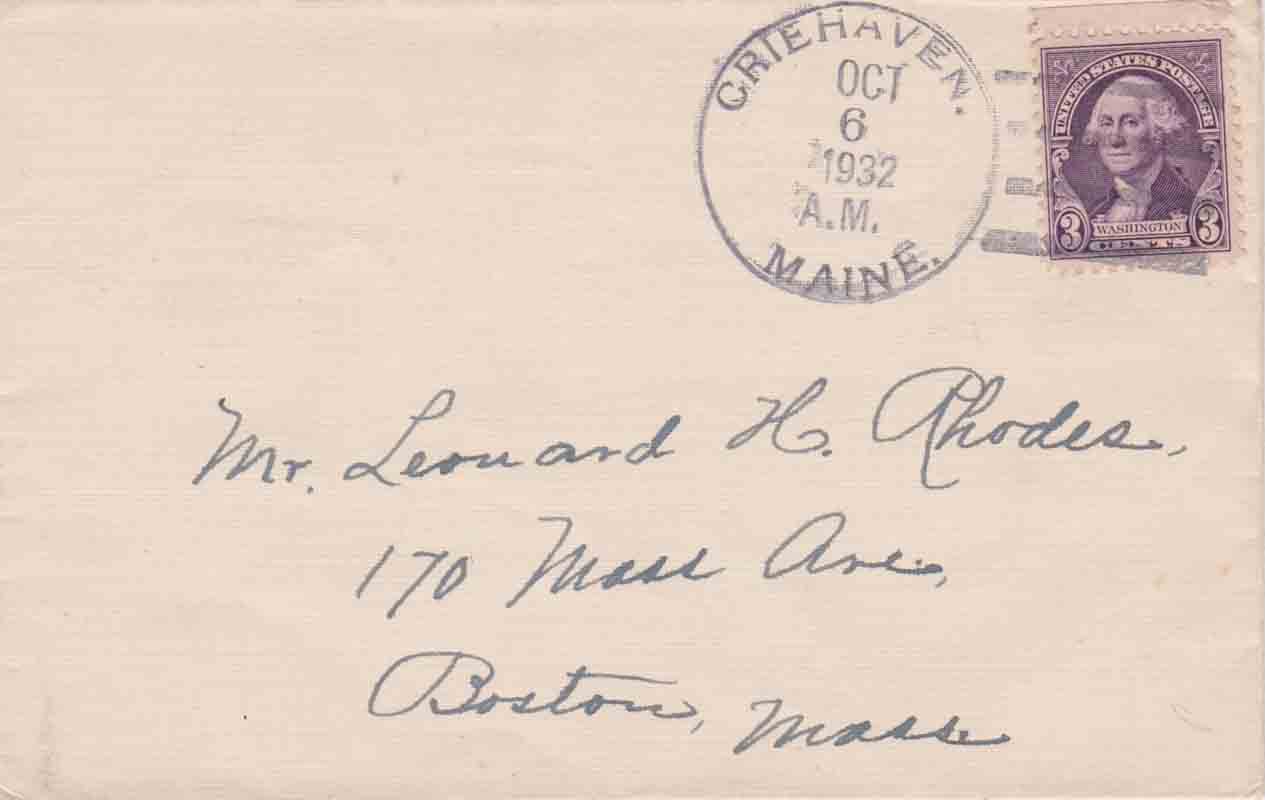 CRIEHAVEN.
OCT
6
1932
A.M.
MAINE.
UNITED STATES POSTAGE
3 WASHINGTON 3
CENTS
Mr. Leonard H. Rhodes,
170 Mass Ave,
Boston, Mass.